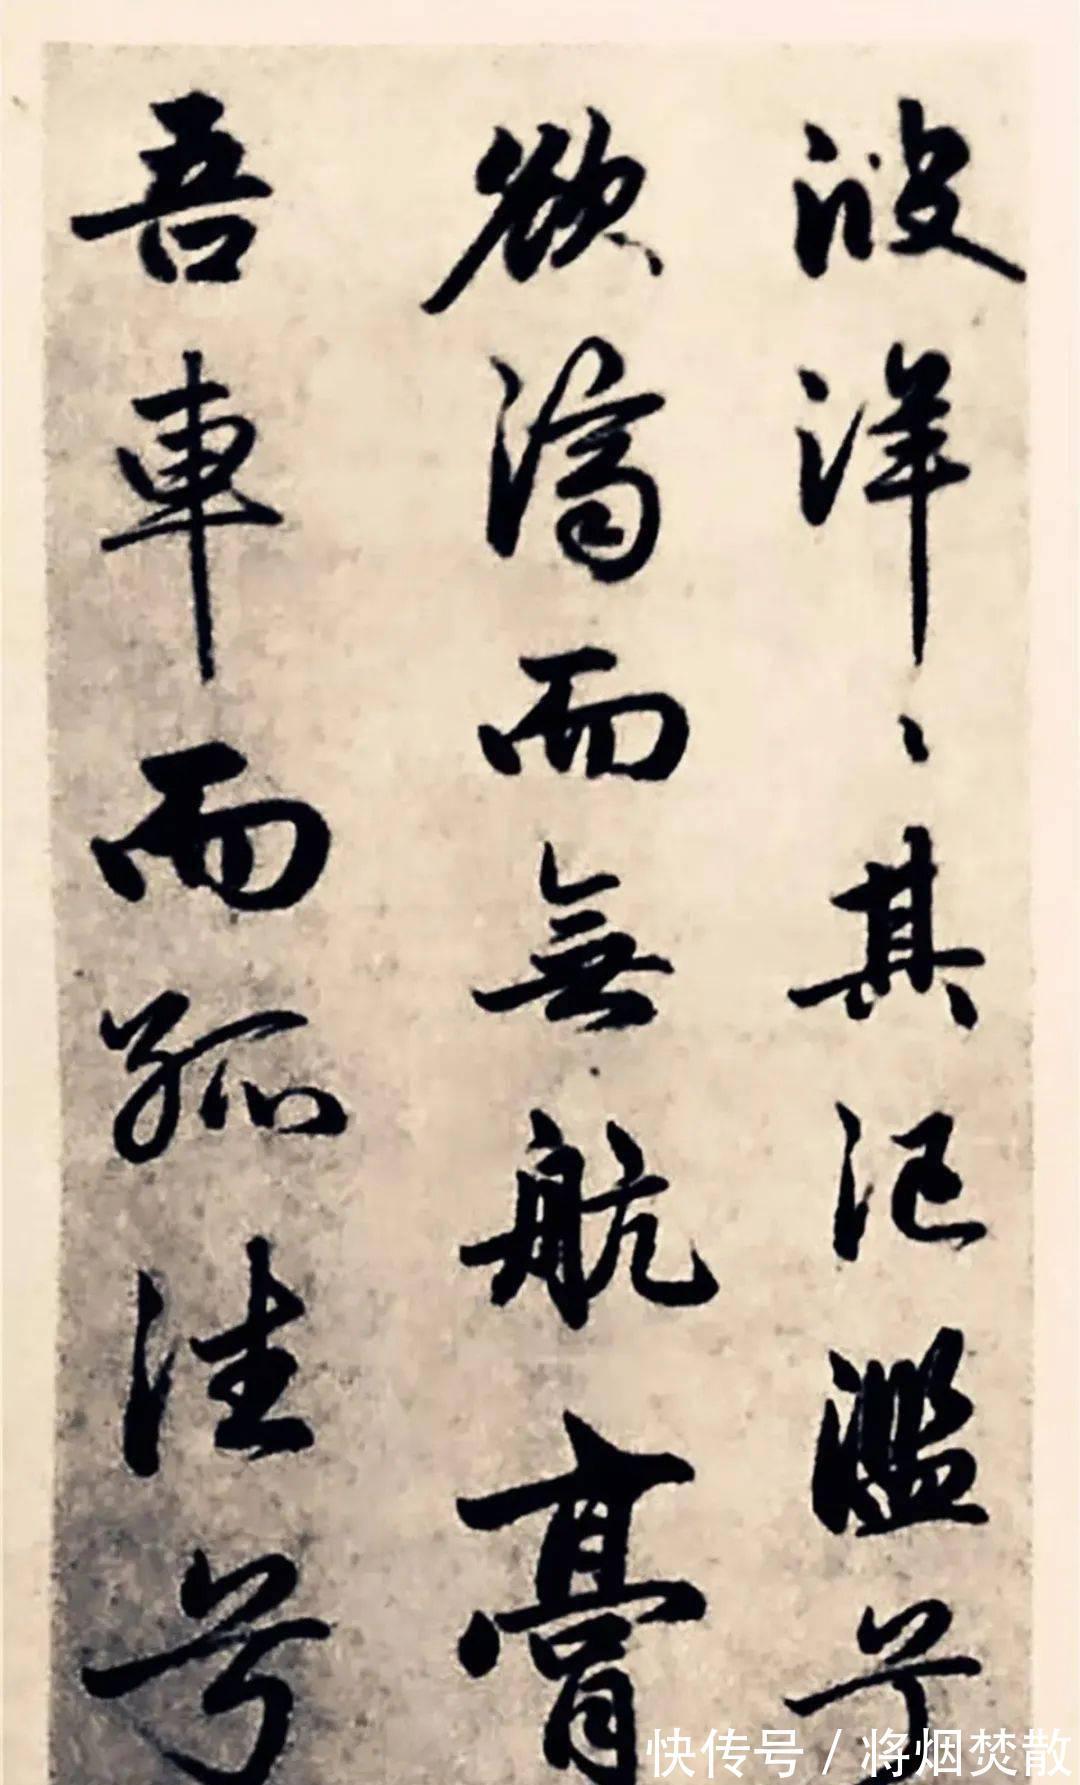 波洋〻其汜濫兮
欲濟而無航膏
吾車而孤往兮
快传号／将烟焚散